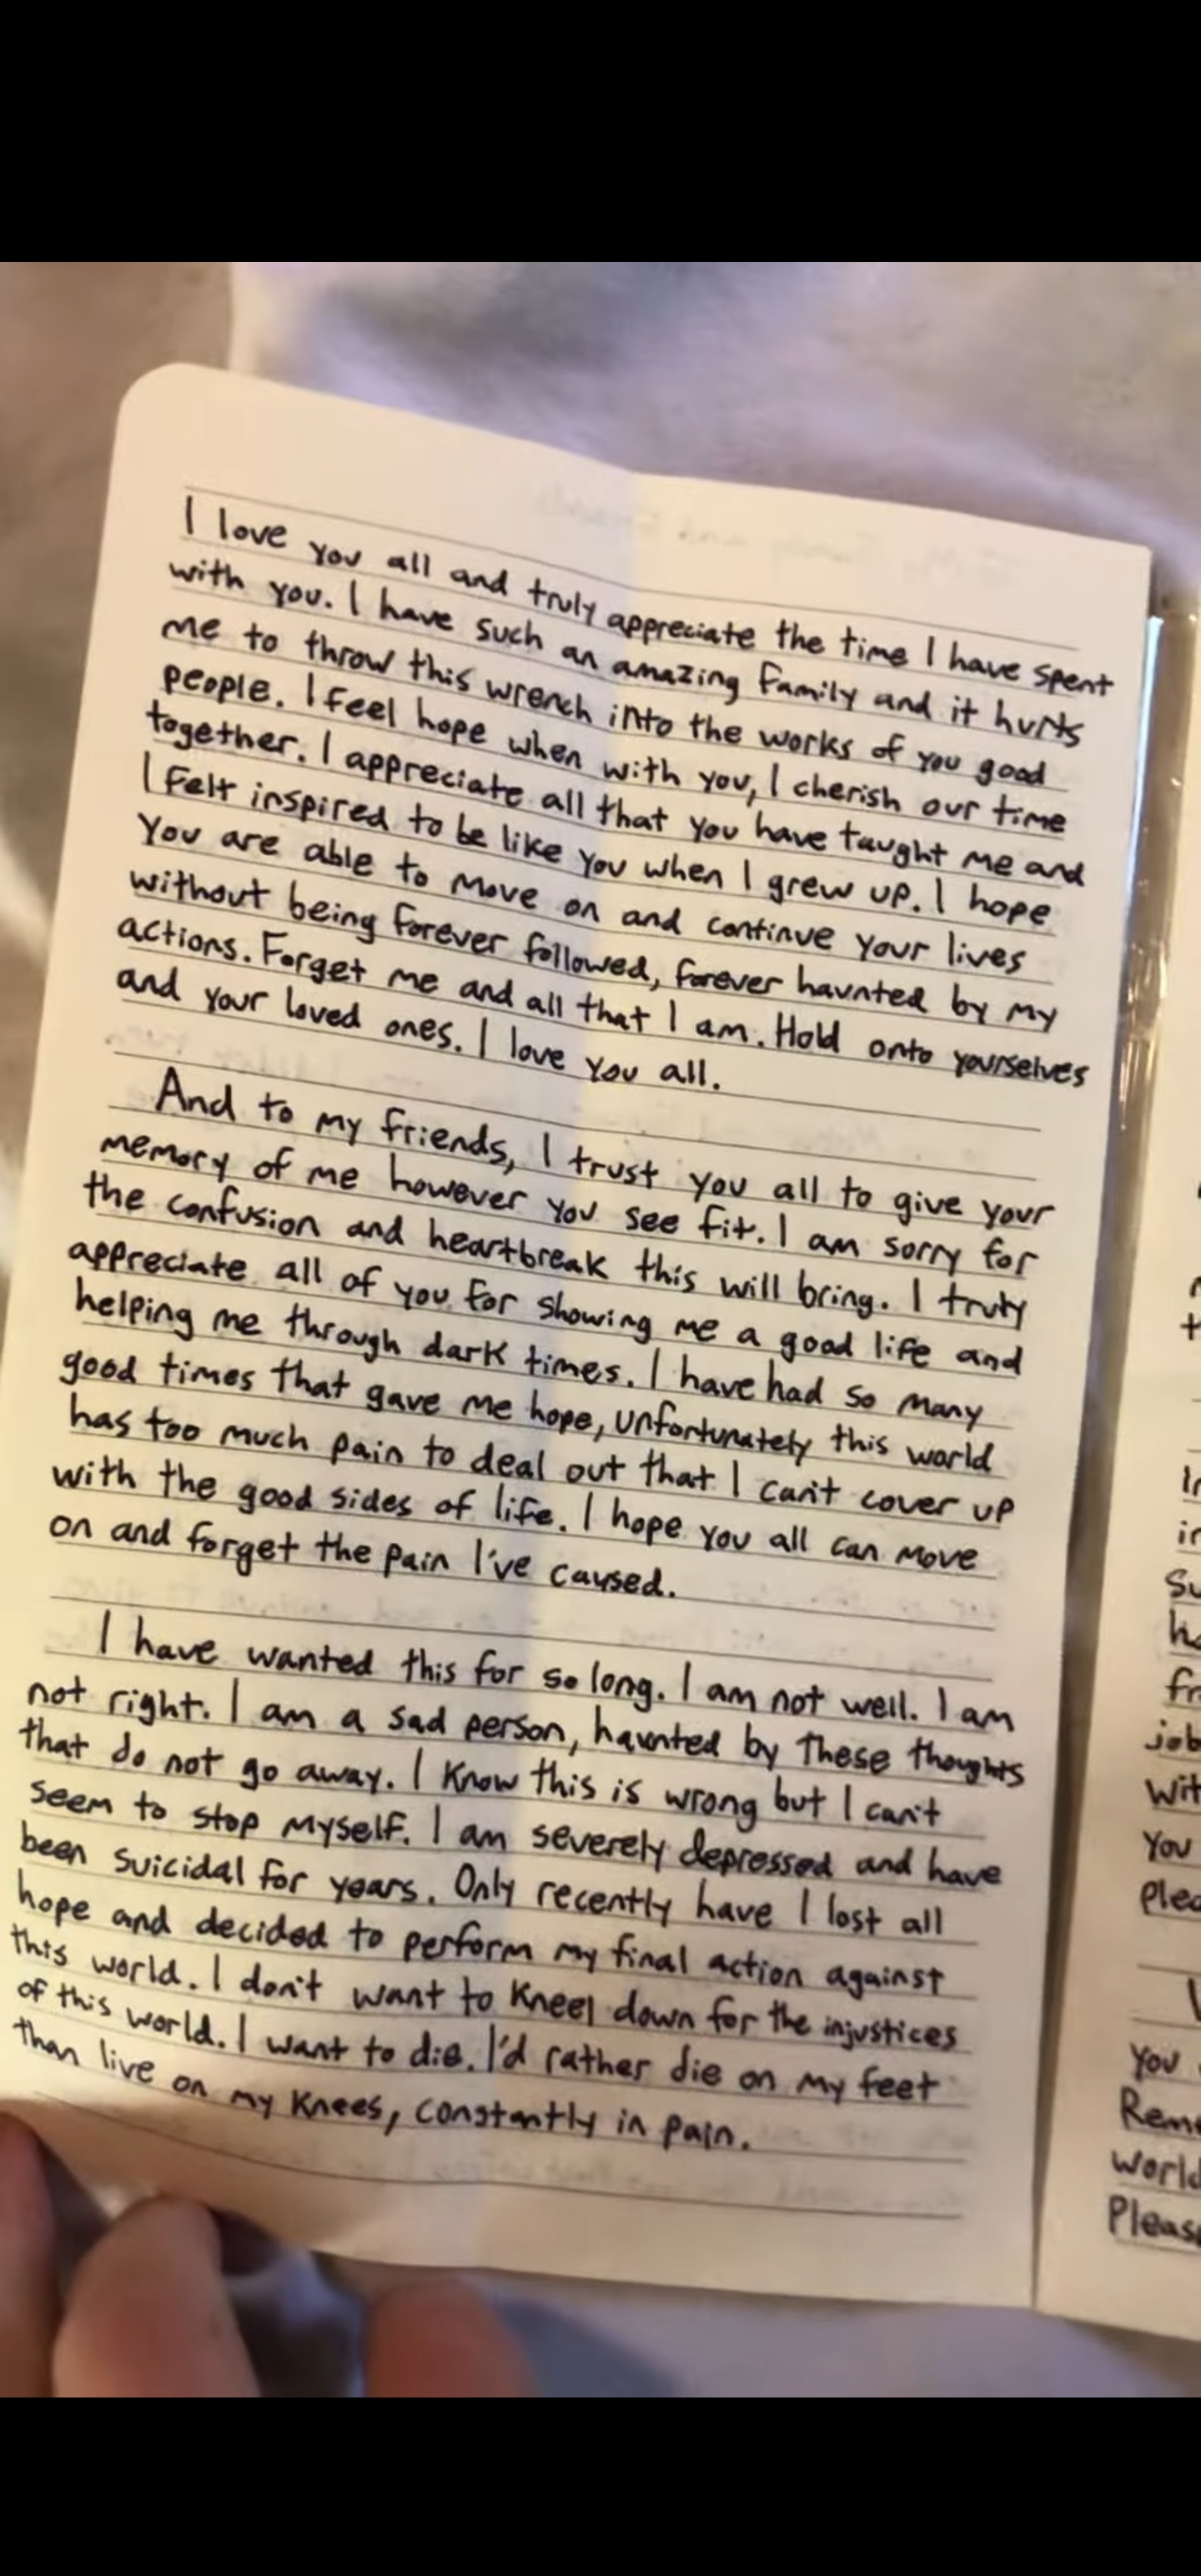 I love you all and truly appreciate the time I have spent
with you. I have such an amazing family and it hurts
me to throw this wrench into the works of you good
people. I feel hope when with you, I cherish our time
together. I appreciate all that you have taught me and
I felt inspired to be like you when I grew up. I hope
You are able to move on and continue your lives
without being forever followed, forever haunted by my
actions. Forget me and all that I am. Hold onto yourselves
and your loved ones. I love you all.
And to my friends, I trust you all to give your
memory of me however you see fit. I am sorry for
the confusion and heartbreak this will bring. I truly
appreciate all of you for showing me a good life and
helping me through dark times. I have had so many
good times that gave me hope, unfortunately this world
has too much pain to deal out that I can't cover up
with the good sides of life. I hope you all can move
on and forget the pain I've caused.
I have wanted this for so long. I am not well. I am
not right. I am a sad person, haunted by these thoughts
that do not go away. I know this is wrong but I can't
seem to stop myself. I am severely depressed and have
been suicidal for years. Only recently have I lost all
hope and decided to perform my final action against
this world. I don't want to kneel down for the injustices
of this world. I want to die. I'd rather die on my feet
than live on my knees, constantly in pain.
job
You
you